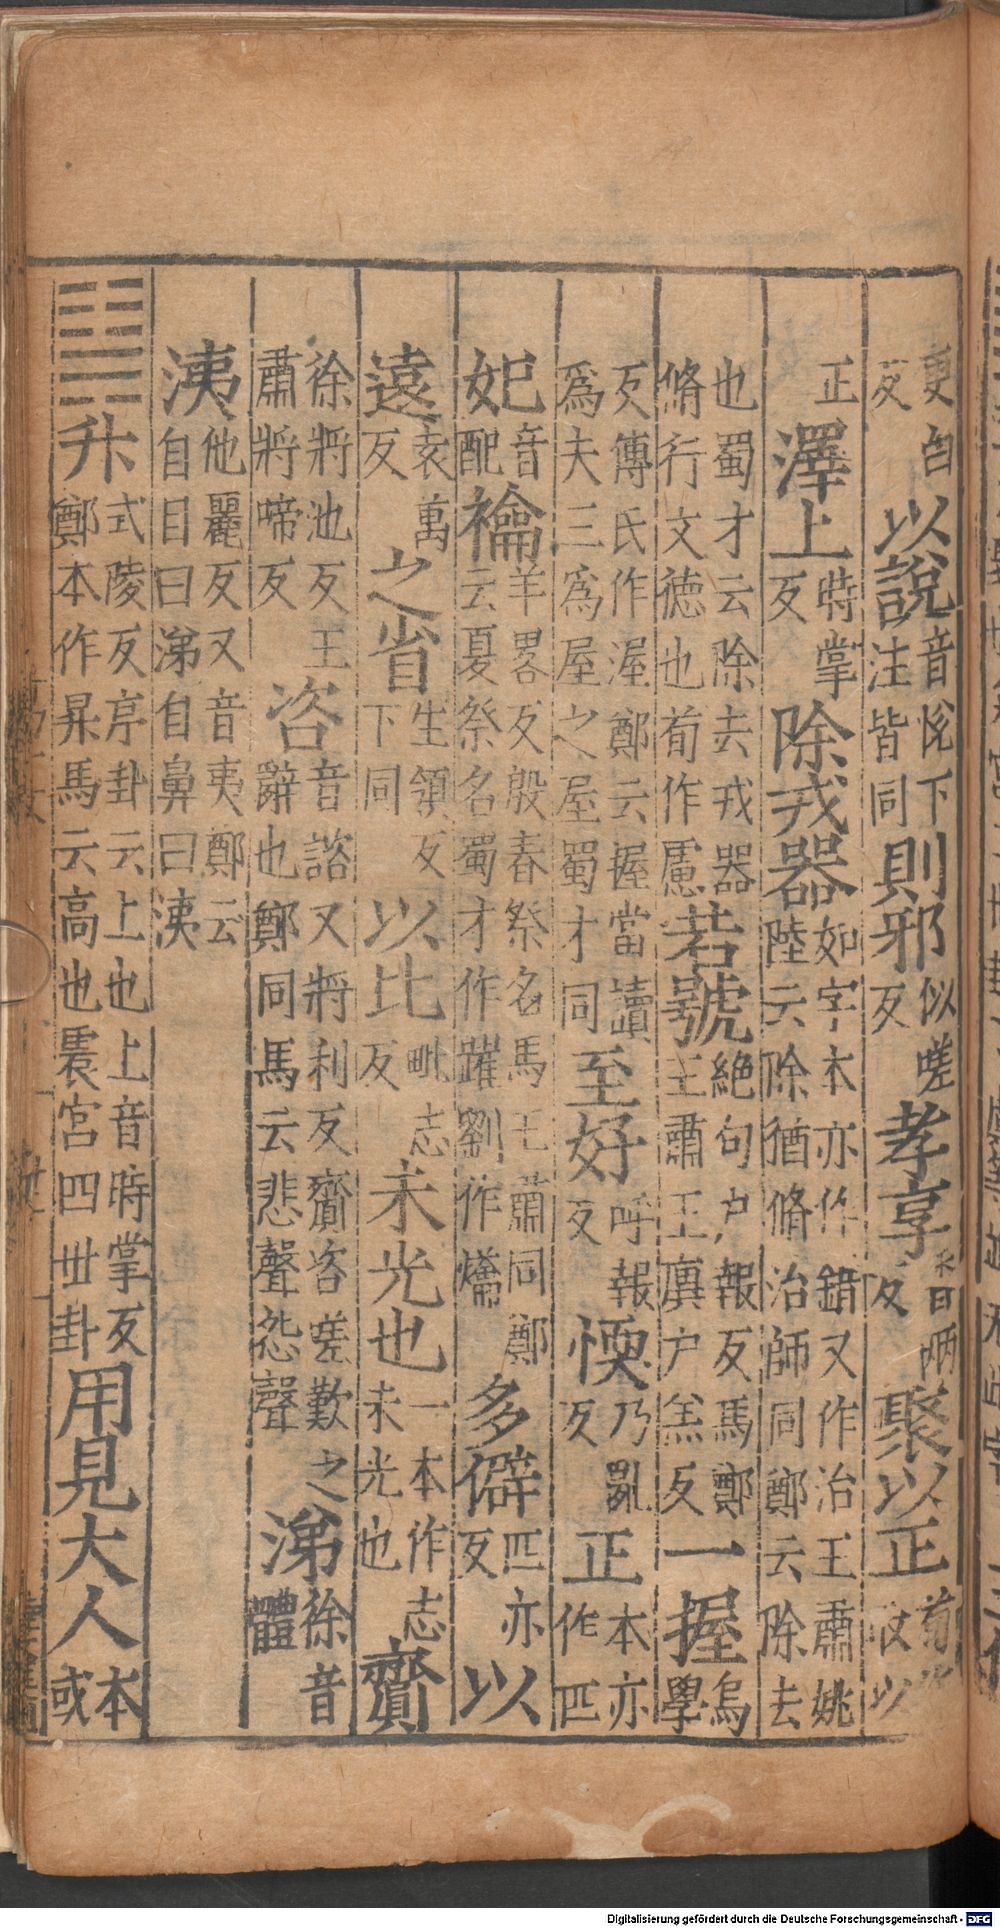 更白反以說音悅下注皆同則邪似嗟反孝享香兩反聚以正荀以
正澤上時掌反除戎器如字本亦作錯又作治王肅姚陸云除猶脩治師同鄭云除去
也蜀才云除去戎器脩行文德也荀作慮若號絶句户報反馬鄭王肅王廙户羔反一握烏學
反傅氏作渥鄭云握當讀爲夫三爲屋之屋蜀才同至好呼報反愞乃亂反正本亦作匹
妃音配禴羊畧反殷春祭名馬王肅同鄭云夏祭名蜀才作躍劉作爚多僻匹亦反以
遠袁萬反之省生領反下同以比毗志反未光也一本作志未光也齎
徐將池反王肅將啼反咨音諮又將利反齎咨嗟歎之辭也鄭同馬云悲聲怨聲涕徐音體
洟他麗反又音夷鄭云自目曰涕自鼻曰洟
䷭升式陵反序卦云上也上音時掌反鄭本作昇馬云高也震宫四世卦用見大人本或
Digitalisierung gefördert durch die Deutsche Forschungsgemeinschaft - DFG